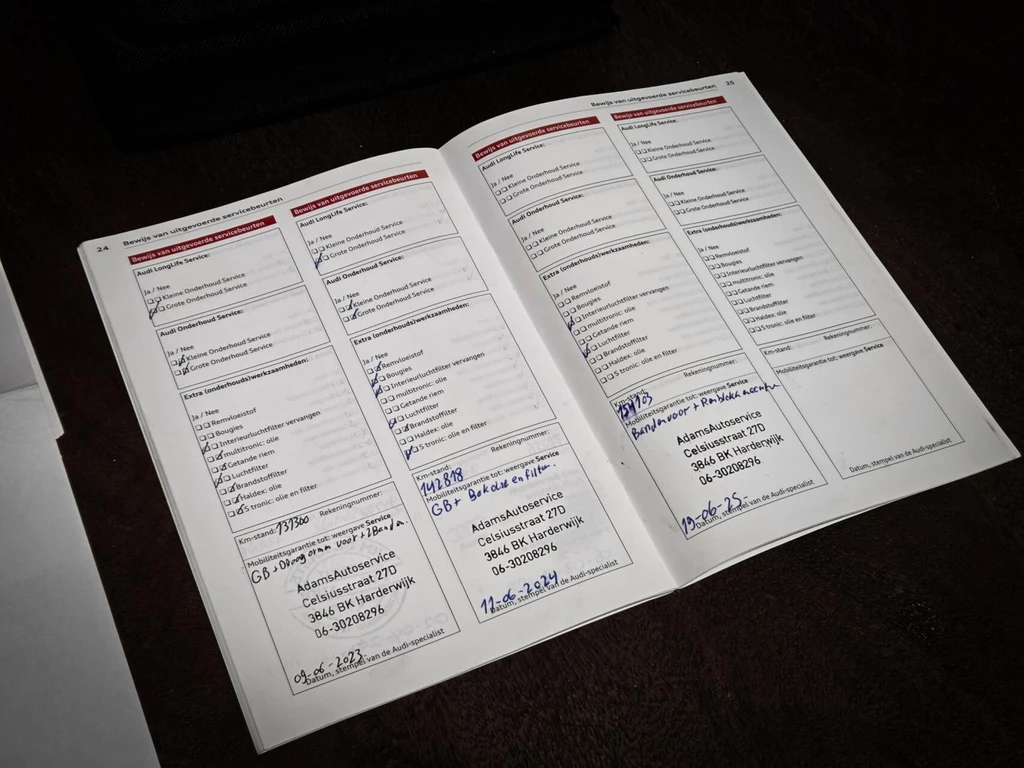 24 Bewijs van uitgevoerde servicebeurten
Bewijs van uitgevoerde servicebeurten
Audi LongLife Service:
Ja / Nee
Kleine Onderhoud Service
Grote Onderhoud Service
Audi Onderhoud Service:
Ja / Nee
Kleine Onderhoud Service
Grote Onderhoud Service
Extra (onderhouds)werkzaamheden:
Ja / Nee
Remvloeistof
Bougies
Interieurluchtfilter vervangen
multitronic: olie
Getande riem
Luchtfilter
Brandstoffilter
Haldex: olie
S tronic: olie en filter
Km-stand: 131300 Rekeningnummer:
Mobiliteitsgarantie tot: weergave Service
GB + voor + 2 Banden.
AdamsAutoservice
Celsiusstraat 27D
3846 BK Harderwijk
06-30208296
09-06-2023
Datum, stempel van de Audi-specialist
Bewijs van uitgevoerde servicebeurten
Audi LongLife Service:
Ja / Nee
Kleine Onderhoud Service
Grote Onderhoud Service
Audi Onderhoud Service:
Ja / Nee
Kleine Onderhoud Service
Grote Onderhoud Service
Extra (onderhouds)werkzaamheden:
Ja / Nee
Remvloeistof
Bougies
Interieurluchtfilter vervangen
multitronic: olie
Getande riem
Luchtfilter
Brandstoffilter
Haldex: olie
S tronic: olie en filter
Km-stand: Rekeningnummer:
142818
Mobiliteitsgarantie tot: weergave Service
GB + Bak olie en filter.
AdamsAutoservice
Celsiusstraat 27D
3846 BK Harderwijk
06-30208296
11-06-2024
Datum, stempel van de Audi-specialist
Bewijs van uitgevoerde servicebeurten 25
Bewijs van uitgevoerde servicebeurten
Audi LongLife Service:
Ja / Nee
Kleine Onderhoud Service
Grote Onderhoud Service
Audi Onderhoud Service:
Ja / Nee
Kleine Onderhoud Service
Grote Onderhoud Service
Extra (onderhouds)werkzaamheden:
Ja / Nee
Remvloeistof
Bougies
Interieurluchtfilter vervangen
multitronic: olie
Getande riem
Luchtfilter
Brandstoffilter
Haldex: olie
S tronic: olie en filter
Km-stand: Rekeningnummer:
Mobiliteitsgarantie tot: weergave Service
Banden voor + Remblokken
AdamsAutoservice
Celsiusstraat 27D
3846 BK Harderwijk
06-30208296
19-06-25-
Datum, stempel van de Audi-specialist
Bewijs van uitgevoerde servicebeurten
Audi LongLife Service:
Ja / Nee
Kleine Onderhoud Service
Grote Onderhoud Service
Audi Onderhoud Service:
Ja / Nee
Kleine Onderhoud Service
Grote Onderhoud Service
Extra (onderhouds)werkzaamheden:
Ja / Nee
Remvloeistof
Bougies
Interieurluchtfilter vervangen
multitronic: olie
Getande riem
Luchtfilter
Brandstoffilter
Haldex: olie
S tronic: olie en filter
Km-stand: Rekeningnummer:
Mobiliteitsgarantie tot: weergave Service
Datum, stempel van de Audi-specialist